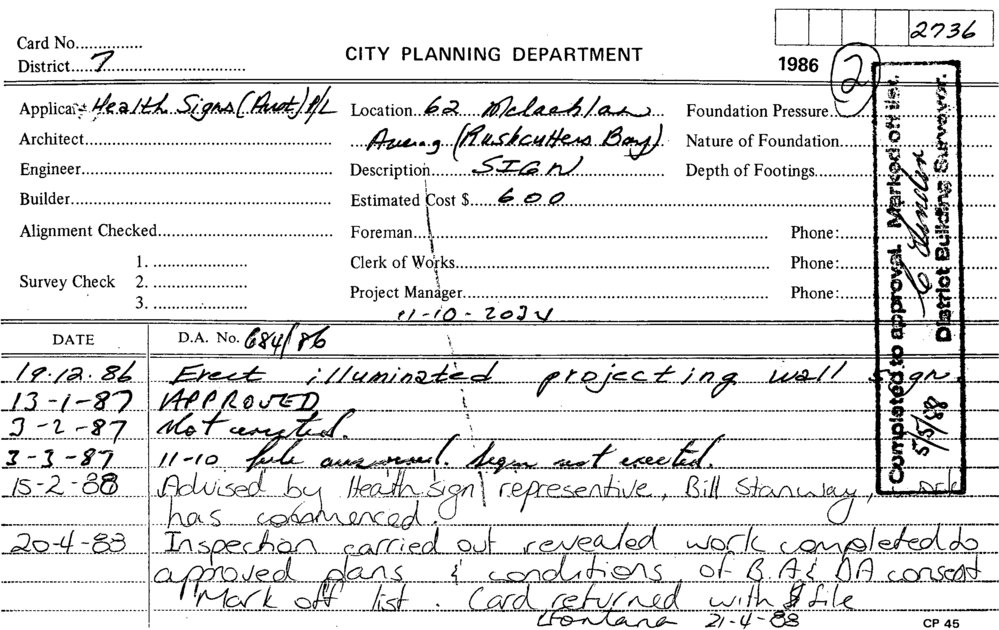 2736
Card No.
District 7
CITY PLANNING DEPARTMENT
1986
2
Applicant Health Signs (Aust) P/L
Location 62 Mclachlan
Foundation Pressure
Architect
(Rushcutters Bay)
Nature of Foundation
Engineer
Description SIGN
Depth of Footings
Builder
Estimated Cost $ 600
Alignment Checked
Foreman
Phone:
Survey Check
1.
2.
3.
Clerk of Works
Phone:
Project Manager
Phone:
11-10-2034
Completed to approval. Marked off list.
5/5/88
District Building Surveyor.
DATE
D.A. No. 684/86
19.12.86 Erect illuminated projecting wall sign.
13-1-87 APPROVED
3-2-87 Not erected.
3-3-87 11-10 file Sign not erected.
15-2-88 Advised by Healthsign representive, Bill Stanway,
has commenced.
20-4-88 Inspection carried out revealed work completed to
approved plans & conditions of B.A & DA consent
"Mark off list. Card returned with file
21-4-88
CP 45